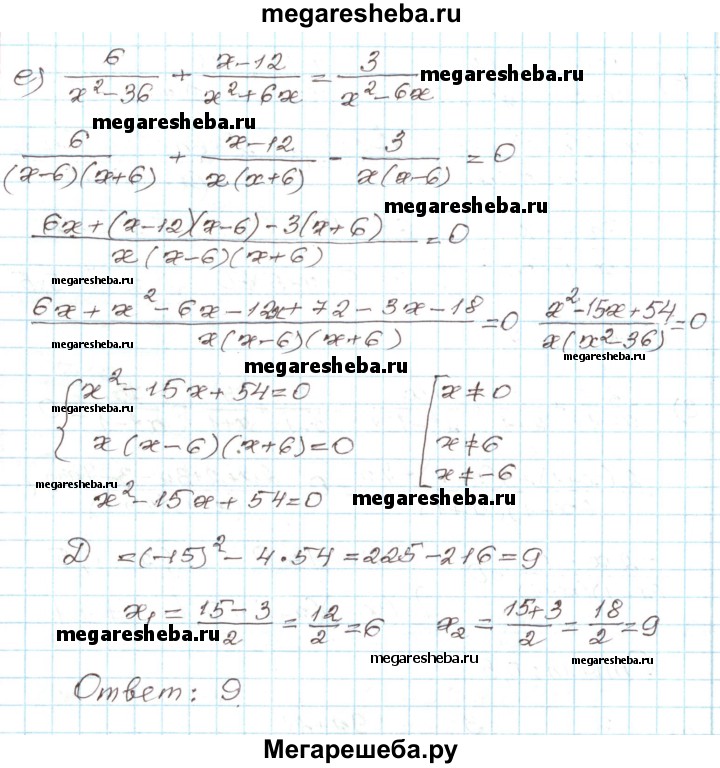 megaresheba.ru
е) 6/(x²-36) + (x-12)/(x²+6x) = 3/(x²-6x) megaresheba.ru
megaresheba.ru
6/((x-6)(x+6)) + (x-12)/(x(x+6)) - 3/(x(x-6)) = 0
megaresheba.ru
(6x+(x-12)(x-6)-3(x+6))/(x(x-6)(x+6)) = 0
megaresheba.ru
(6x+x²-6x-12x+72-3x-18)/(x(x-6)(x+6)) = 0 (x²-15x+54)/(x(x²-36)) = 0
megaresheba.ru megaresheba.ru megaresheba.ru
{ x²-15x+54=0 [ x≠0
x(x-6)(x+6)=0 x≠6
x≠-6
megaresheba.ru
x²-15x+54=0 megaresheba.ru
Д =(-15)²-4·54=225-216=9
x₁ = (15-3)/2 = 12/2 = 6 x₂ = (15+3)/2 = 18/2 = 9
megaresheba.ru
megaresheba.ru megaresheba.ru
Ответ: 9
Мегарешеба.ру